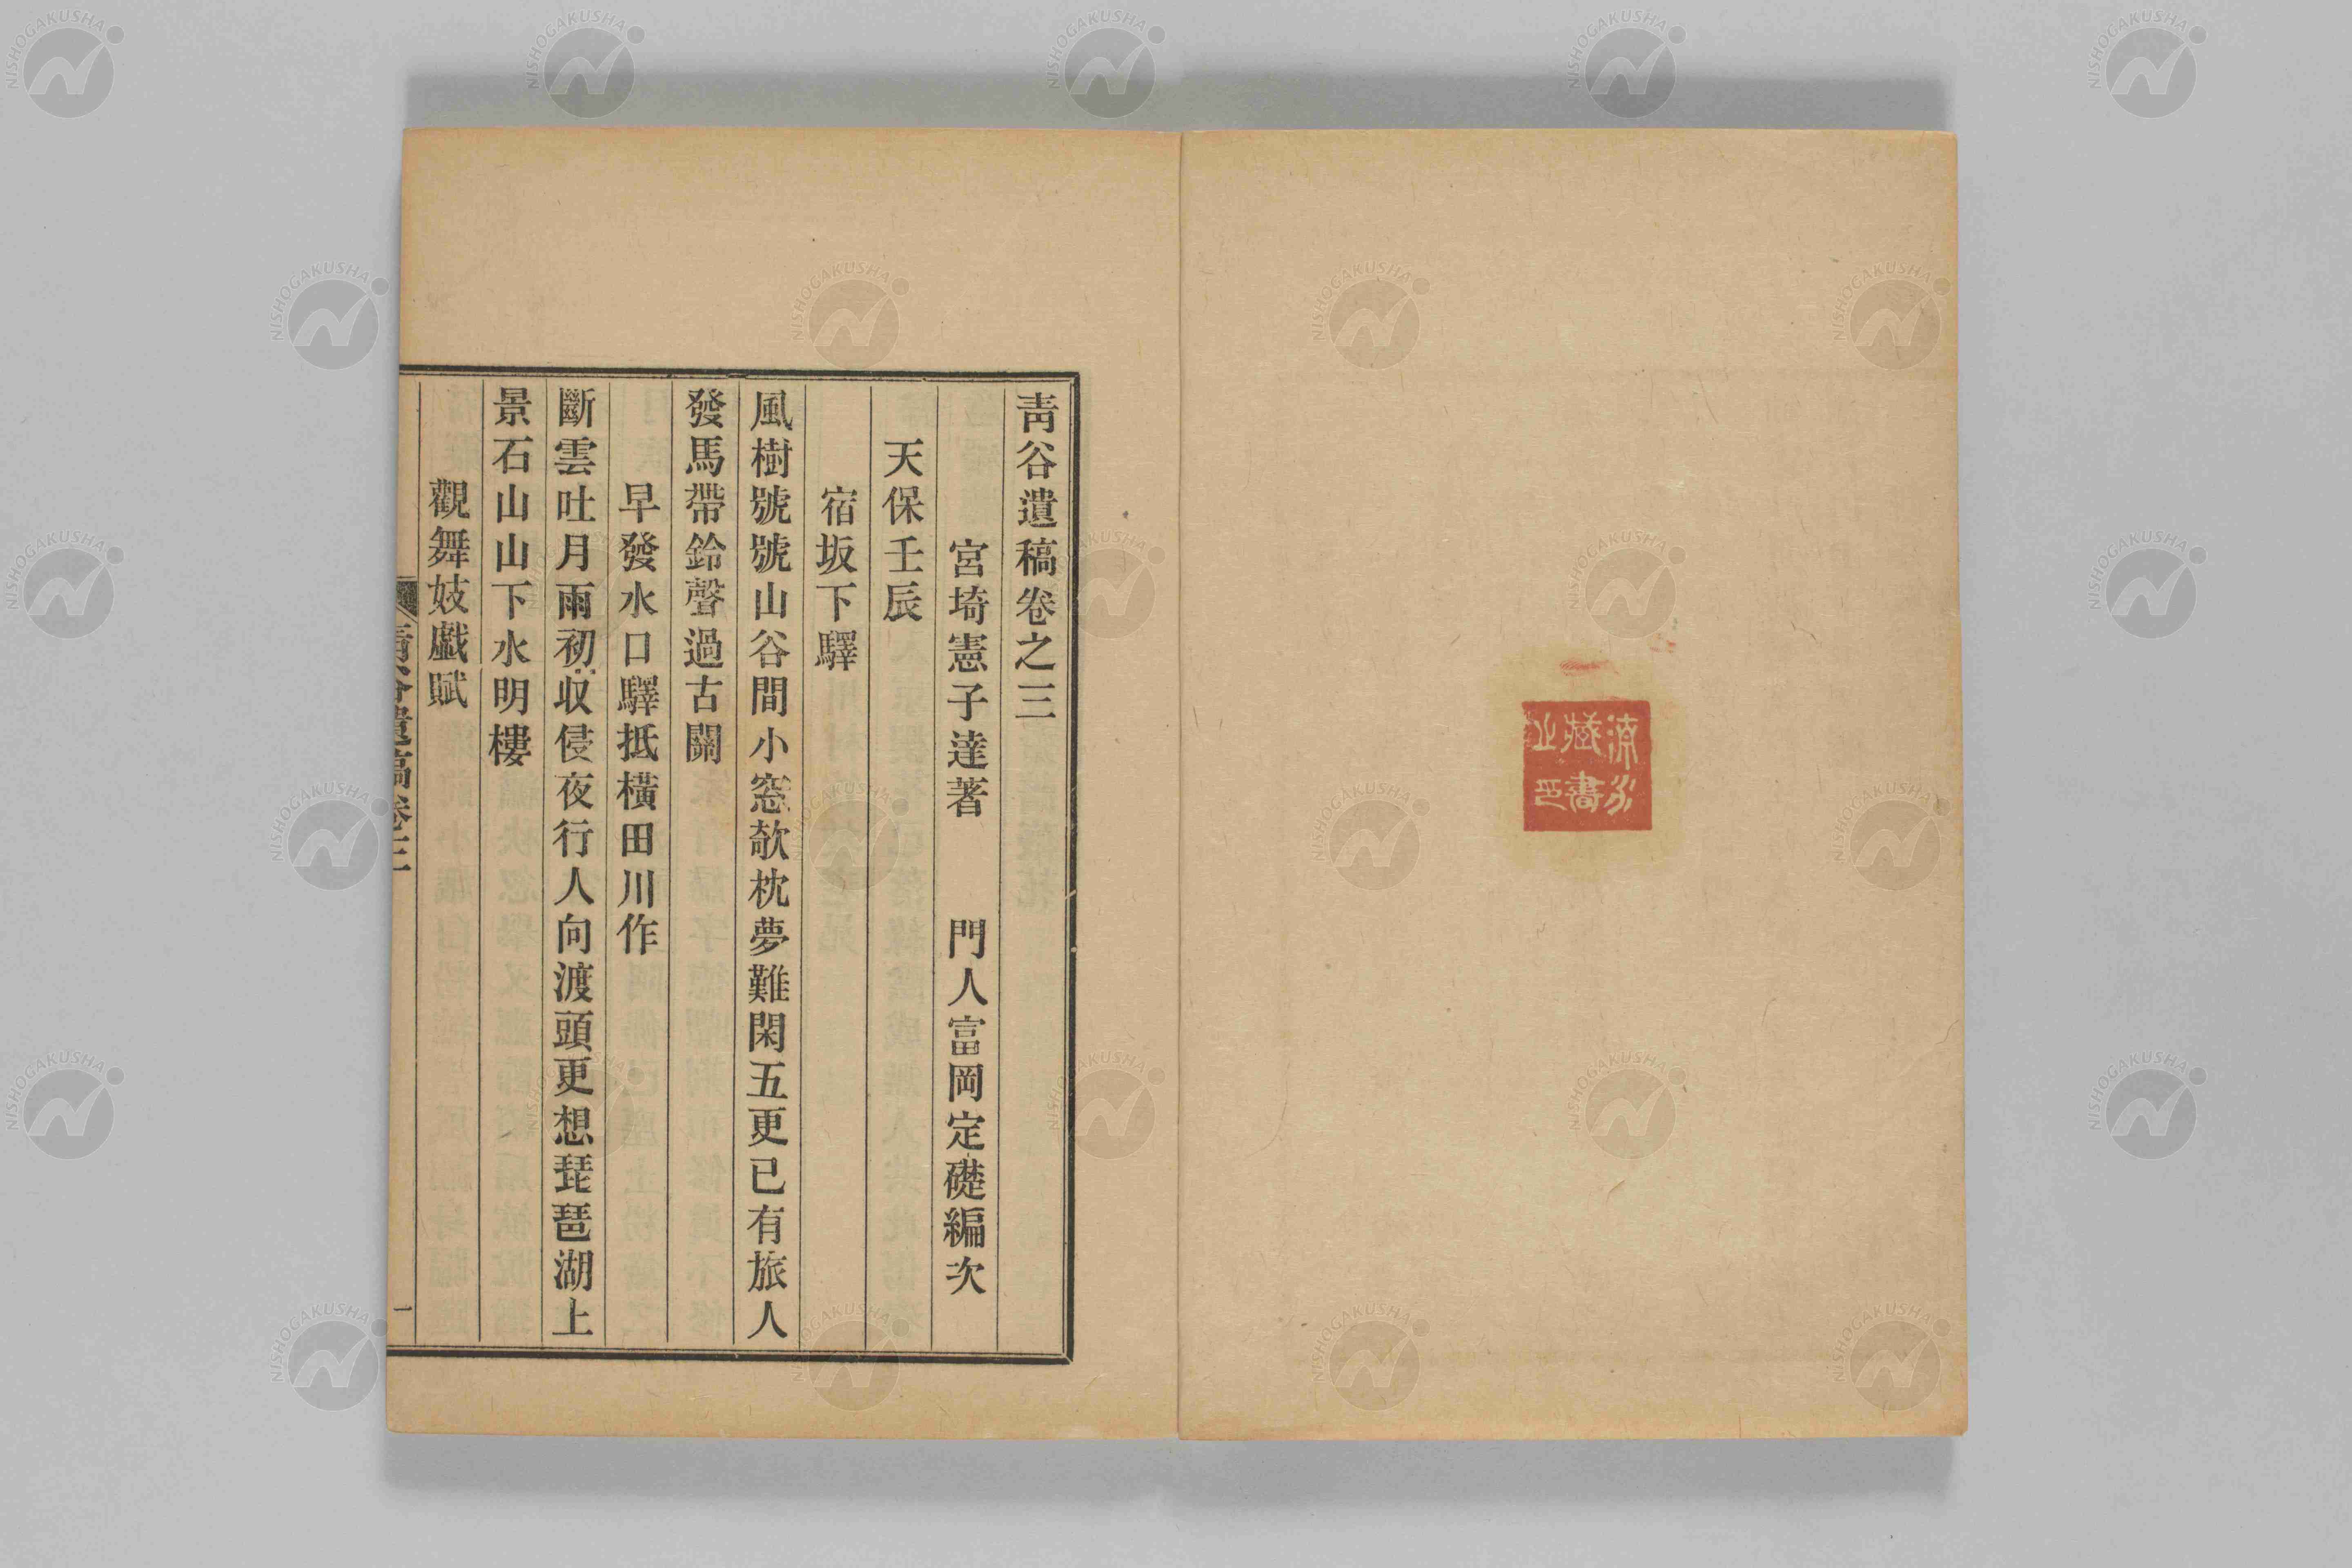 青谷遺稿卷之三
宮埼憲子達著 門人富岡定礎編次
天保壬辰
宿坂下驛
風樹號號山谷間小窓欹枕夢難閑五更已有旅人
發馬帶鈴聲過古關
早發水口驛抵橫田川作
斷雲吐月雨初収侵夜行人向渡頭更想琵琶湖上
景石山山下水明樓
觀舞妓戯賦
青谷遺稿卷三
一
藏書
之印
NISHOGAKUSHA